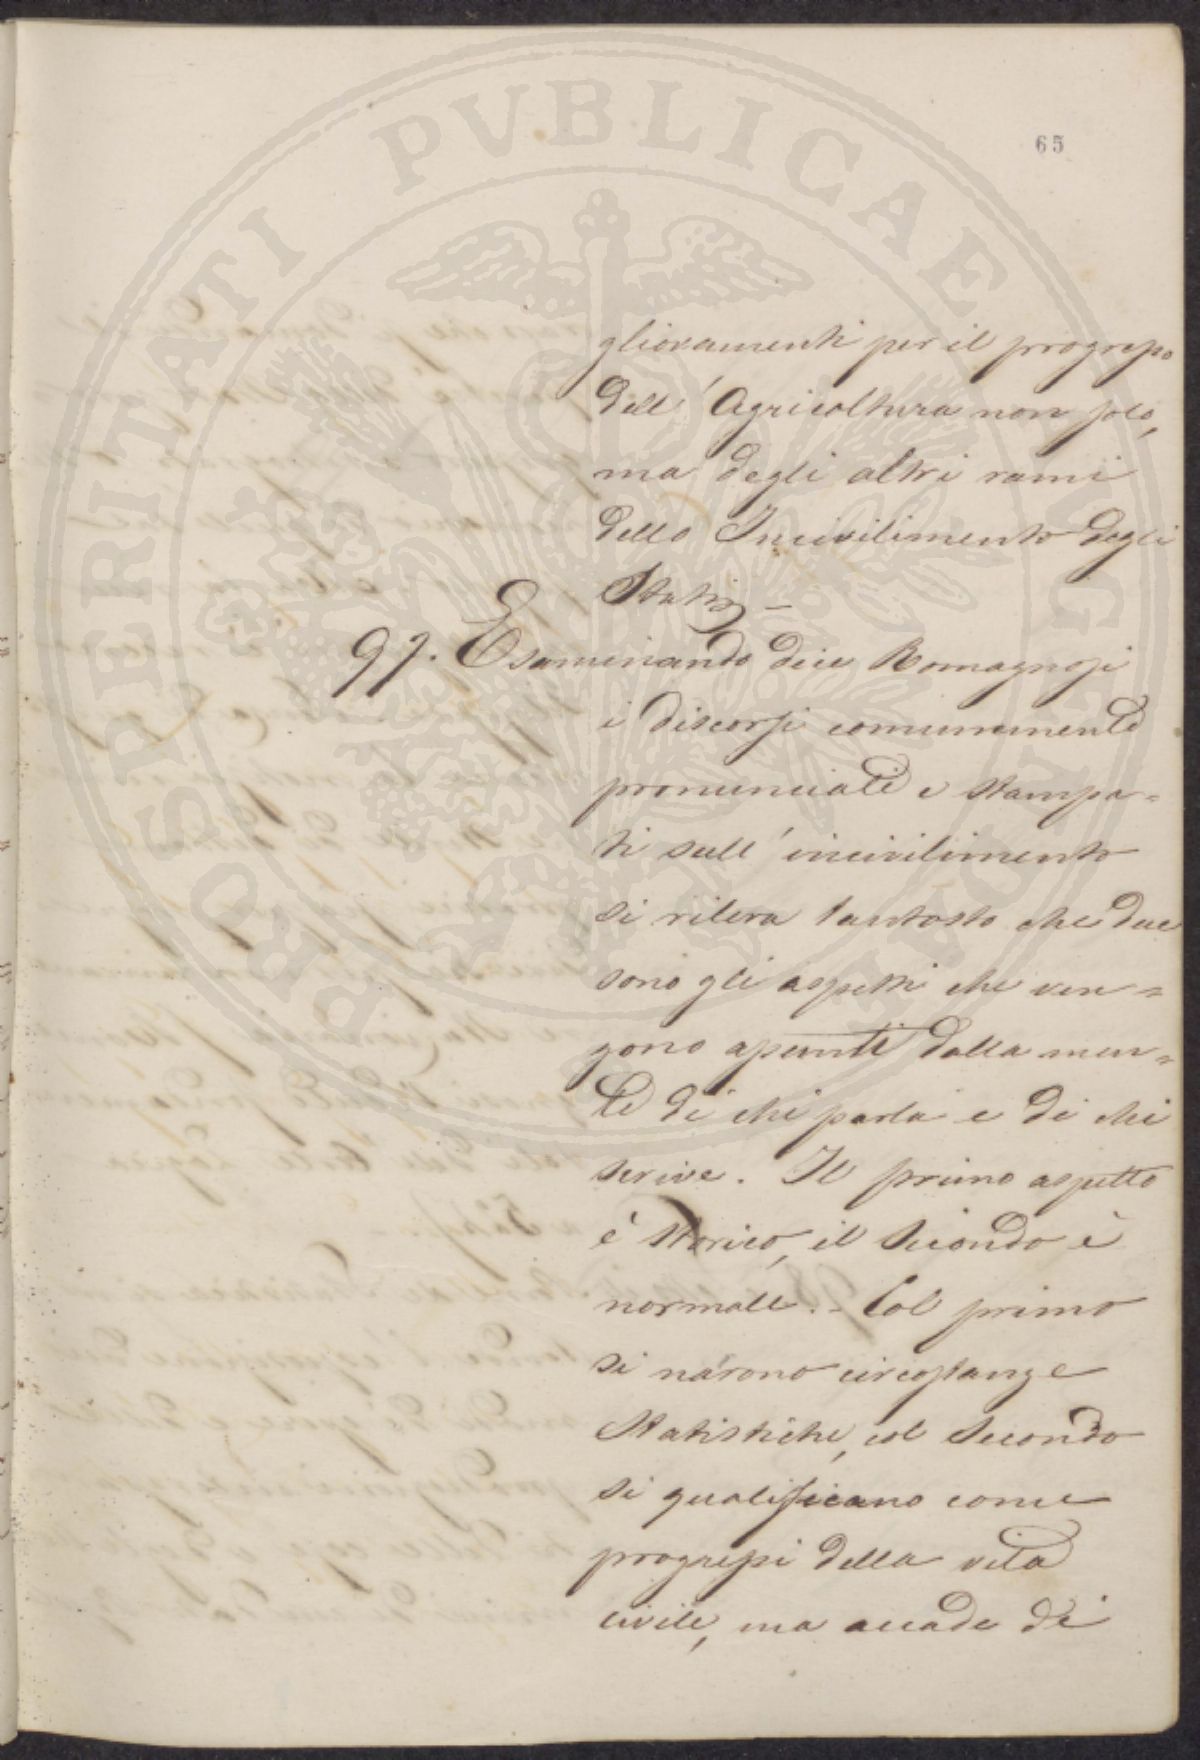 65
gliovamenti per il progresso
dell'Agricoltura non solo,
ma degli altri rami
dello Incivilimento degli
Stati –
97. Esaminando dice Romagnosi
i discorsi comunemente
pronunciati e stampa=
ti sull'incivilimento
si rileva tantosto che due
sono gli aspetti che ven=
gono assunti dalla men=
te di chi parla e di chi
scrive. Il primo aspetto
è storico, il secondo è
normale. – Col primo
si narono circostanze
statistiche, col secondo
si qualificano come
progressi della vita
civile, ma accade di
PROSPERITATI PVBLICAE AVGENDAE